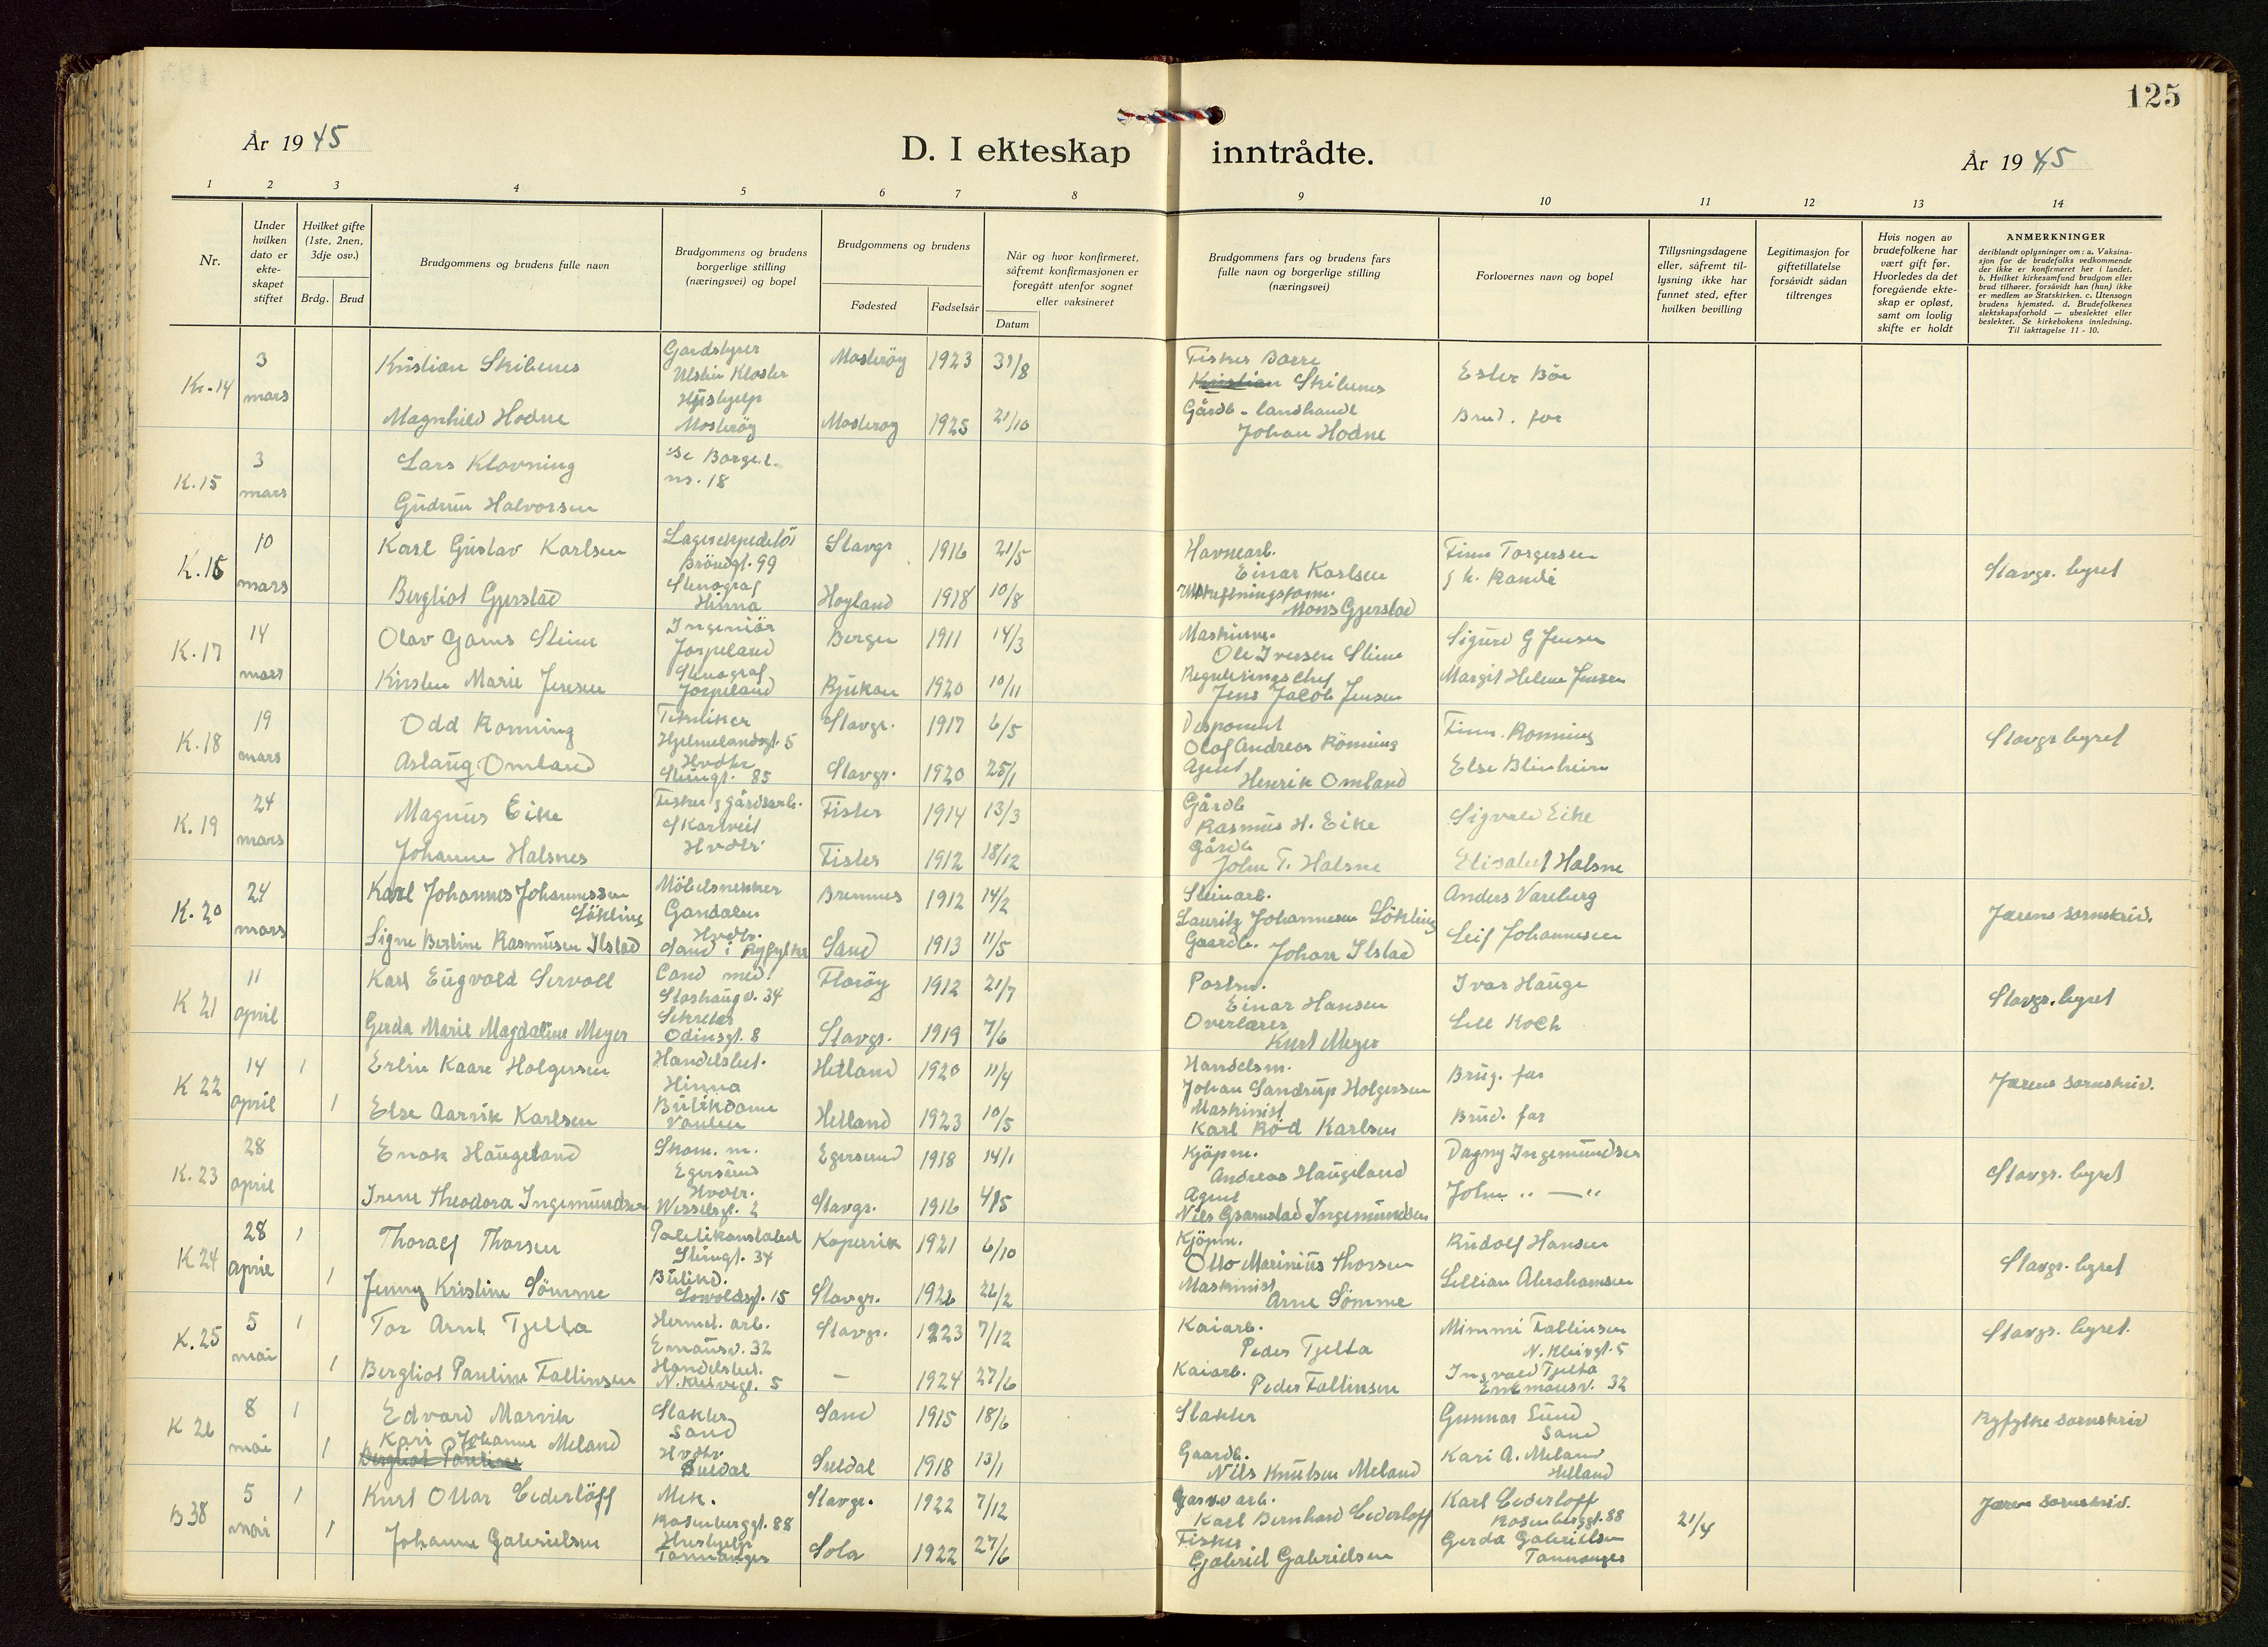 125
År 1945
D. I ekteskap inntrådte.
År 1945
1 2 3 4 5 6 7 8 9 10 11 12 13 14
Nr.
Under hvilken dato er ekte- skapet stiftet
Hvilket gifte (1ste, 2nen, 3dje osv.)
Brdg. Brud
Brudgommens og brudens fulle navn
Brudgommens og brudens borgerlige stilling (næringsvei) og bopel
Brudgommens og brudens
Fødested Fødselsår
Når og hvor konfirmeret, såfremt konfirmasjonen er foregått utenfor sognet eller vaksineret
Datum
Brudgommens fars og brudens fars fulle navn og borgerlige stilling (næringsvei)
Forlovernes navn og bopel
Tillysningsdagene eller, såfremt til- lysning ikke har funnet sted, efter hvilken bevilling
Legitimasjon for giftetillatelse forsåvidt sådan tiltrenges
Hvis nogen av brudefolkene har vært gift før. Hvorledes da det foregående ekte- skap er opløst, samt om lovlig skifte er holdt
ANMERKNINGER
deriblandt oplysninger om: a. Vaksina- sjon for de brudefolks vedkommende der ikke er konfirmeret her i landet. b. Hvilket kirkesamfund brudgom eller brud tilhører, forsåvidt han (hun) ikke er medlem av Statskirken. c. Utensogn brudens hjemsted. d. Brudefolkenes slektskapsforhold — ubeslektet eller beslektet. Se kirkebokens innledning. Til iakttagelse 11 - 10.
Kr-14 3 mars Kristian Skibenes Gardstyrer Utstein Kloster Mosterøy 1923 31/8 Fisker Kristian Skibenes Ester Böe
Magnhild Hodne Hushjelp Mosterøy Mosterøy 1925 21/10 Gårdb - landhandl Johan Hodne Brud. far
K.15 3 mars Lars Klovning Se Borge.l. nr. 18
Gudrun Halvorsen
K.16 10 mars Karl Gustav Karlsen Lagerekspeditör 99 Stavgr 1916 21/5 Havnearb. Einar Karlsen Finn Torgersen Stavgr. byret
Bergliot Gjerstad Stenograf Hinna Høyland 1918 10/8 Mons Gjerstad g h. Randi
K.17 14 mars Olav Gams Steine Ingeniör Jørpeland Bergen 1911 14/3 Ole Iversen Steine Sigurd G Jensen
Kirsten Marie Jensen Stenograf Jørpeland Rjukan 1920 10/11 Reguleringschef Jens Jacob Jensen Margit Helene Jensen
K.18 19 mars Odd Rønning Tekniker Hjelmelandsgt. 5 Stavgr. 1917 6/5 Disponent Olaf Andreas Rönning Finn Rønning Stavgr byret
Aslaug Omland Hvdtr Steingt. 85 Stavgr. 1920 25/1 Agent Henrik Omland Else Blinheim
K.19 24 mars Magnus Eike Fisker g gårdsarb. Skartveit Fister 1914 13/3 Gårdb Rasmus H. Eike Sigvald Eike
Johanne Halsnes Hvdtr. Fister 1912 18/12 Gårdb John T. Halsne Elisabet Halsne
K.20 24 mars Karl Johannes Johannessen Lökling Möbelsnekker Gandalen Bremnes 1912 14/2 Steinarb. Lauritz Johannesen Lökling Anders Vareberg Jærens sornskriv.
Signe Bertine Rasmusen Ilstad Hvdtr. Sand i Ryfylke Sand 1913 11/5 Gaardb. Johan Ilstad Leif Johannesen
K 21 11 april Karl Eugvald Servoll Cand med. Stoshaugv. 34 Florøy 1912 21/7 Postm. Einar Hansen Ivar Hauge Stavgr. byret
Gerda Marie Magdaline Meyer Sekretær Odinsgt. 8 Stavgr. 1919 7/6 Overlærer Kurt Meyer Lell Koch
K 22 14 april 1 Erlin Kaare Holgersen Handelsbet. Hinna Hetland 1920 11/4 Handelsm. Johan Sandrup Holgersen Brug. far Jærens sornskriv.
1 Else Aarvik Karlsen Butikdame Vaulen Hetland 1923 10/5 Maskinist Karl Röd Karlsen Brud. far
K.23 28 april Enok Haugeland Skom. m. Egersund Egersund 1918 14/1 Kjöpm. Andreas Haugeland Dagny Ingemundsen Stavgr. byret
Irene Theodora Ingemundsen Hvdtr. Wesselsgt. 2 Stavgr. 1916 4/5 Agent Nils Gramstad Ingemundsen John " — "
K 24 28 april 1 Thoralf Thorsen Politikonstabel Steingt. 34 Kopervik 1921 6/10 Kjöpm. Otto Marinius Thorsen Rudolf Hansen Stavgr. byret
1 Jenny Kristine Sömme Butikd. 15 Stavgr. 1926 26/2 Maskinist Arne Sömme Lillian Abrahamsen
K.25 5 mai 1 Tor Arnt Tjelta Hermet. arb. Emausv. 32 Stavgr. 1923 7/12 Kaiarb. Peder Tjelta Mimmi Fallinsen N. Kleivgt. 5 Stavgr. byret.
1 Bergliot Pauline Fallinsen Handelsbet. N. Kleivegt. 5 — 1924 27/6 Kaiarb. Peder Fallinsen Ingvald Tjelta Emmausv. 32
K 26 8 mai 1 Edvard Marvik Slakter Sand Sand 1915 18/6 Slakter Gunnar Lund Sand Ryfylke sornskriv
1 Kari Johanne Meland Bergliot Pauline Hvdtr. Suldal Suldal 1918 13/1 Gaardb. Nils Knutsen Meland Kari A. Meland Hetland
B 38 5 mai 1 Kurt Ottar Cederlöff Mek. Rosenberggt. 88 Stavgr. 1922 7/12 Karl Bernhard Cederloff Karl Cederloff Rosenberggt. 88 21/4 Jæren sornskriv.
1 Johanne Gabrielsen Hushjelp Tannanger Sola 1922 27/6 Fisker Gabriel Gabrielsen Gerda Gabrielsen Tannanger